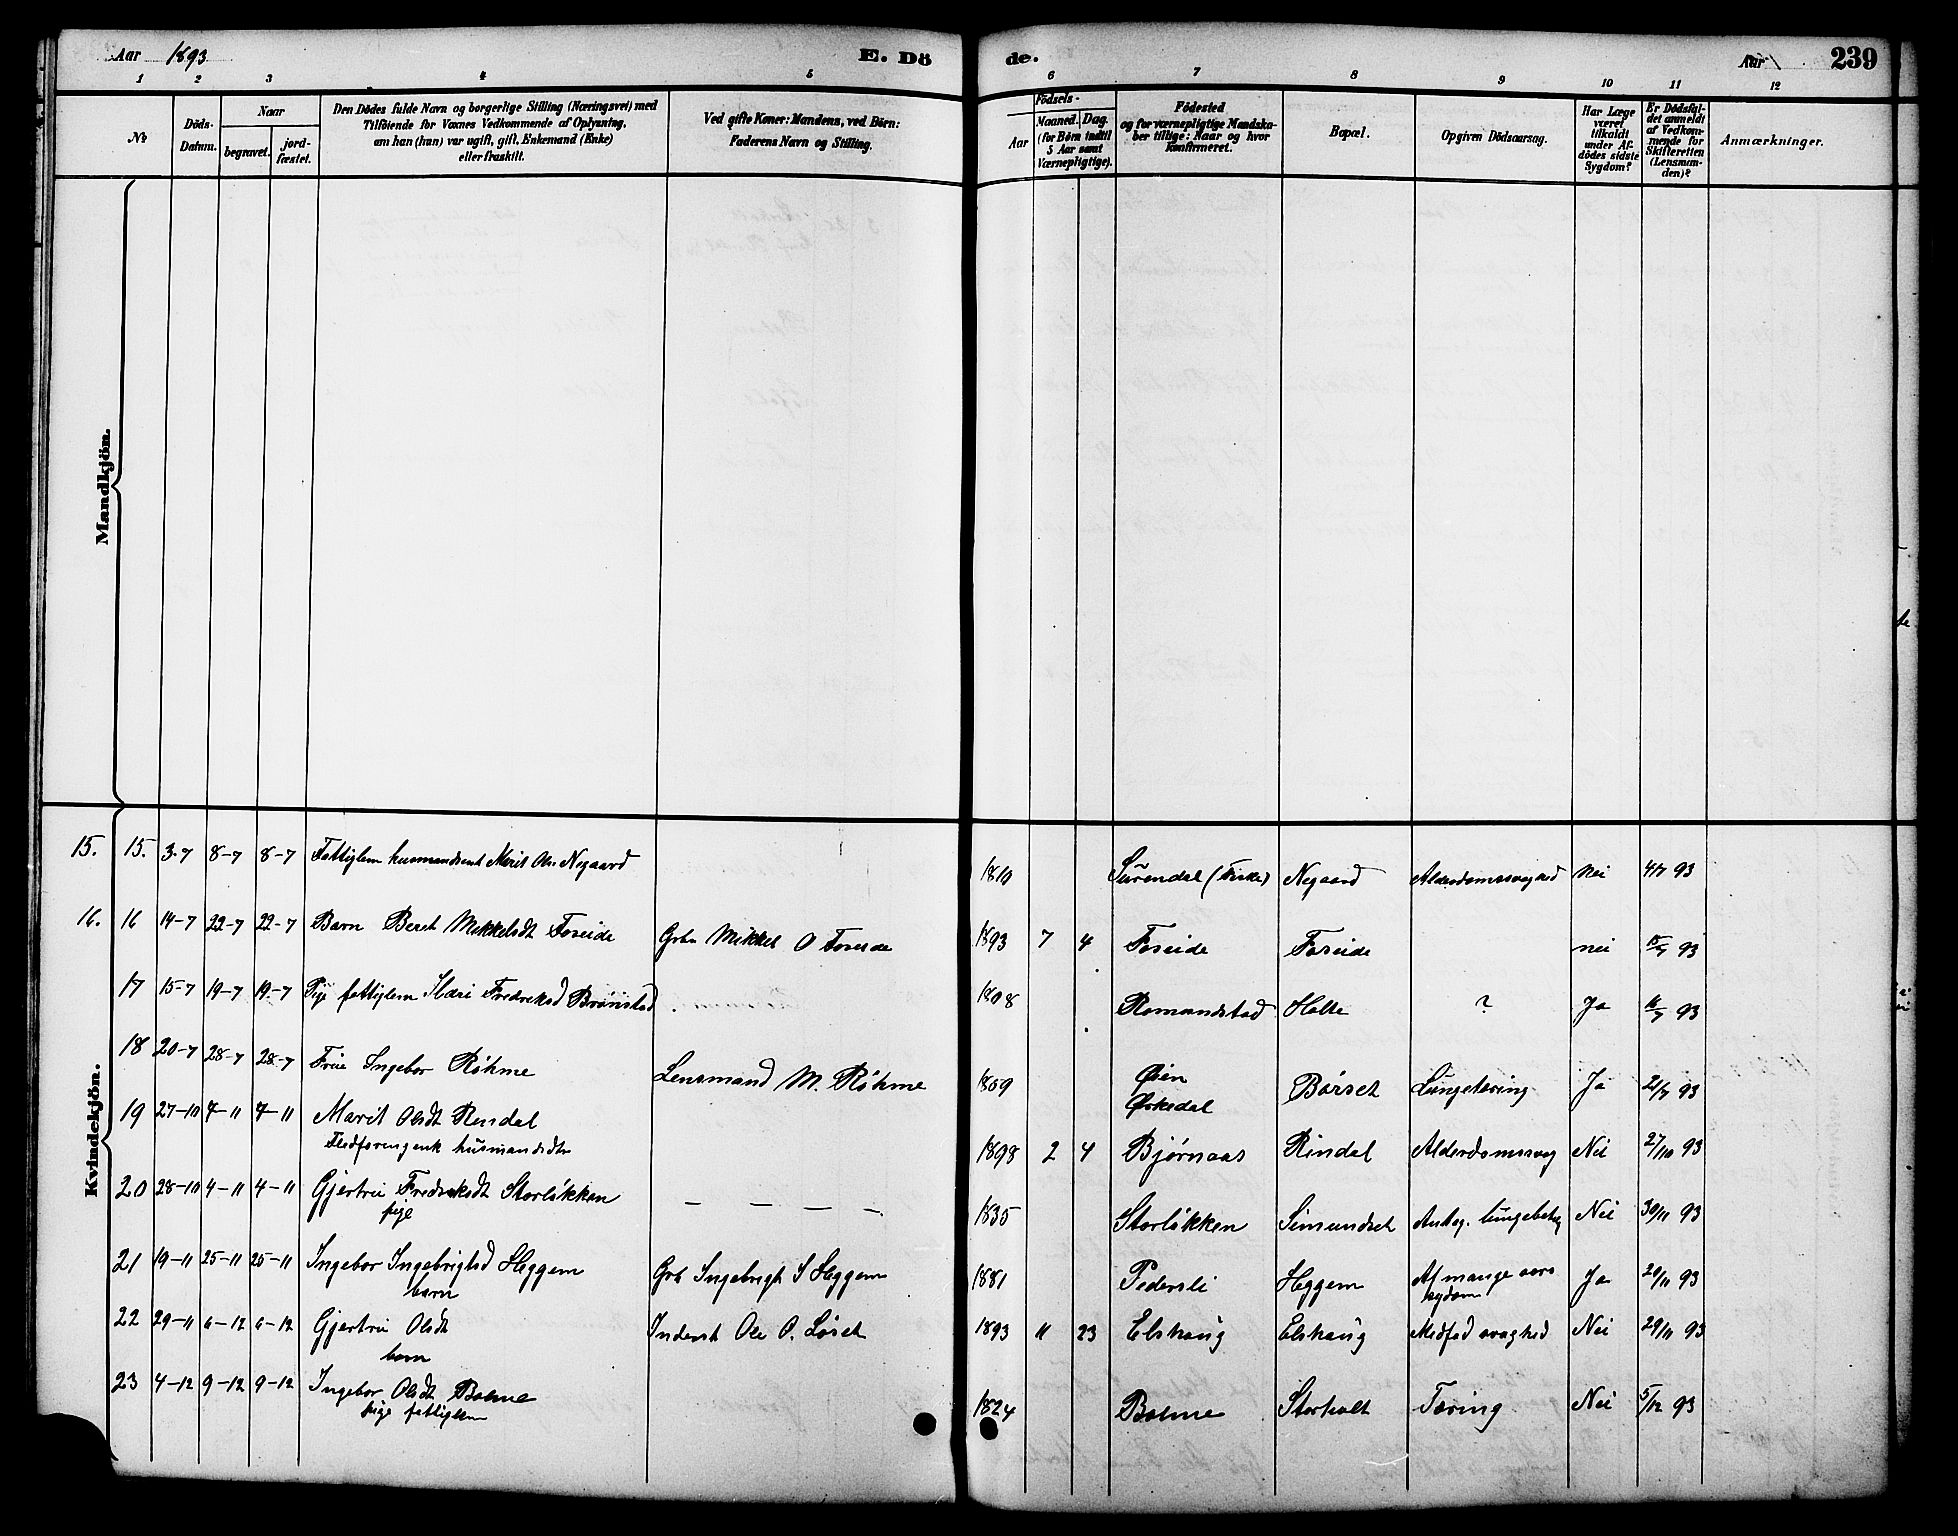 Aar 1893
E. Dö
de.
Aar
239
1 2 3 4 5 6 7 8 9 10 11 12
№
Döds-Datum.
Naar
begravet.
jord-fæstet.
Den Dödes fulde Navn og borgerlige Stilling (Næringsvei) med
Tilföiende for Voxnes Vedkommende af Oplysning,
om han (hun) var ugift, gift, Enkemand (Enke)
eller fraskilt.
Ved gifte Koner: Mandens, ved Börn:
Faderens Navn og Stilling.
Födsels-
Aar
Maaned. Dag.
(for Börn indtil
5 Aar samt
Værnepligtige).
Födested
og for værnepligtige Mandska-
ber tillige: Naar og hvor
konfirmeret.
Bopæl.
Opgiven Dödsaarsag.
Har Læge
været
tilkaldt
under Af-
dödes sidste
Sygdom?
Er Dödsfal-
det anmeldt
af Vedkom-
mende for
Skifteretten
(Lensman-
den)?
Anmærkninger.
Mandkjön.
Kvindekjön.
15. 15. 3-7 8-7 8-7 Fattiglem husmandsenk Marit Ols. Nygaard 1810 Surendal Nygaard nei 4/7 93
16. 16 14-7 22-7 22-7 Barn Beret Mikkelsdt Foseide Grbr Mikkel O Foseide 1893 7 4 Foseide Foseide nei 15/7 93
17 15-7 19-7 19-7 Pige fattiglem Fredriksd Brønstad 1808 Romundstad Holte ? Ja 16/7 93
18 20-7 28-7 28-7 Frue Ingebor Røhme Lensmand M. Røhme 1859 Øien Børset Lungetæring Ja 21/7 93
Orkedal
19 27-10 4-11 4-11 Marit Olsdt Rindal 1898 2 4 Bjørnaas Rindal Alderdomssvag Nei 27/10 93
husmandsdtr
20 28-10 4-11 4-11 Gjertru Fredriksdt Storløkken — — — — 1835 Storløkken Simundset Nei 30/11 93
pige
21 19-11 25-11 25-11 Ingebor Ingebrigtsd Heggem Grb Ingebrigt S Heggem 1881 Pedersli Heggem Af mange aars Ja 20/11 93
barn sygdom
22 29-11 6-12 6-12 Gjertru Olsdt Inderst Ole O. Løset 1893 11 23 Elshaug Elshaug Medfød svaghed Nei 29/11 93
barn
23 4-12 9-12 9-12 Ingebor Olsdt Bolme 1824 Bolme Storholt Tæring Nei 5/12 93
pige fattiglem